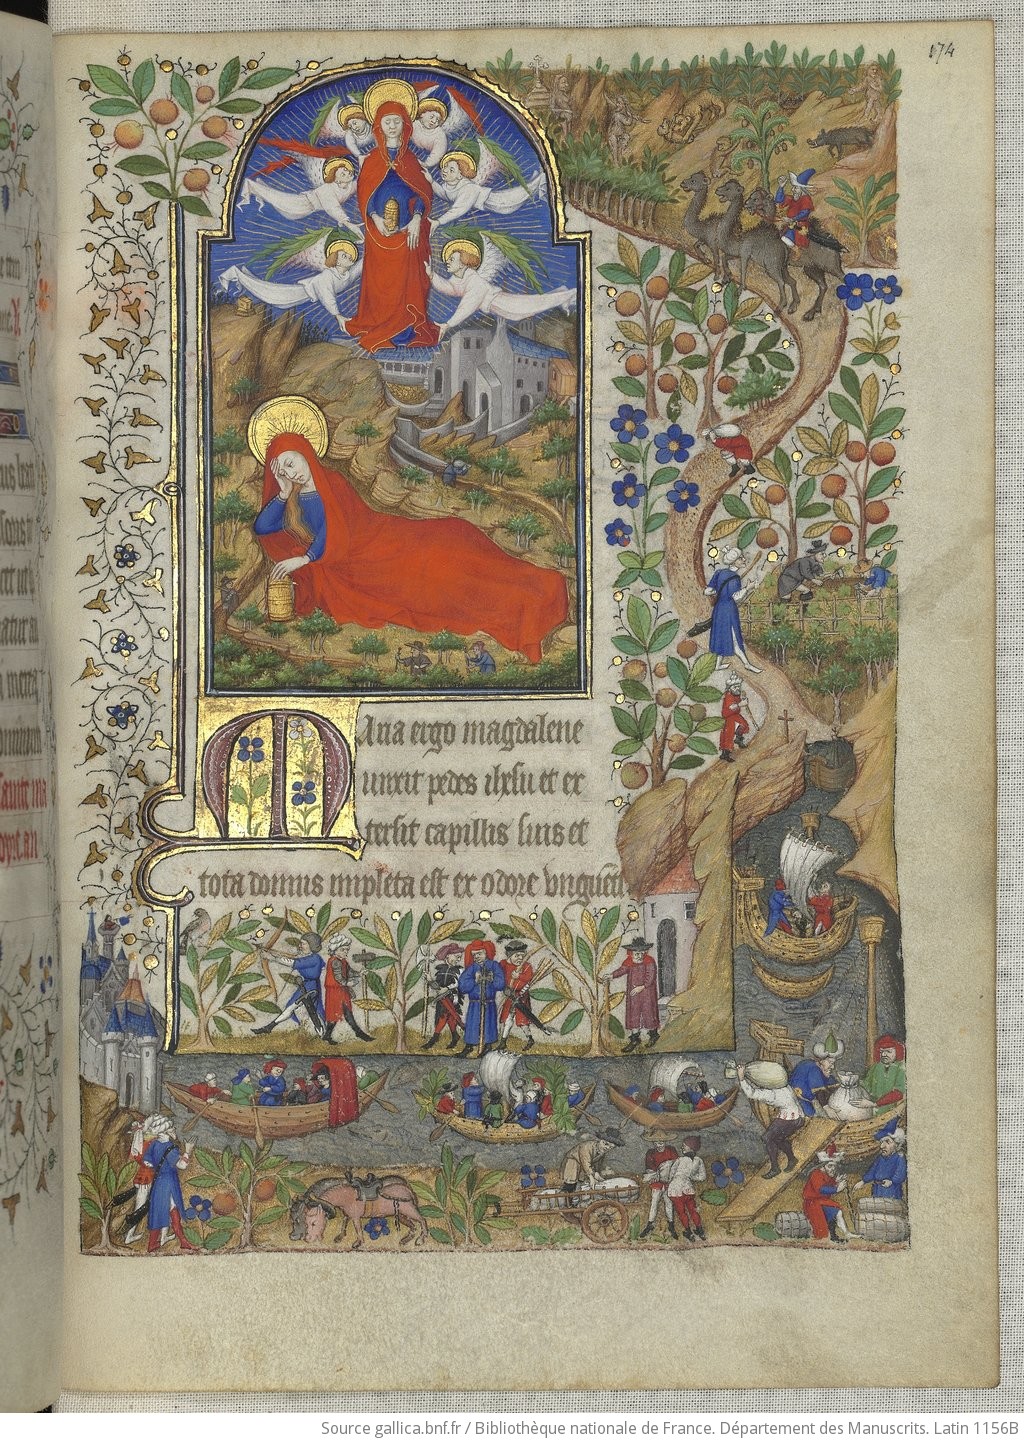 174
Maria ergo magdalene
unxit pedes ihesu et ex
tersit capillis suis et
tota domus impleta est ex odore unguenti
Source gallica.bnf.fr / Bibliothèque nationale de France. Département des Manuscrits. Latin 1156B